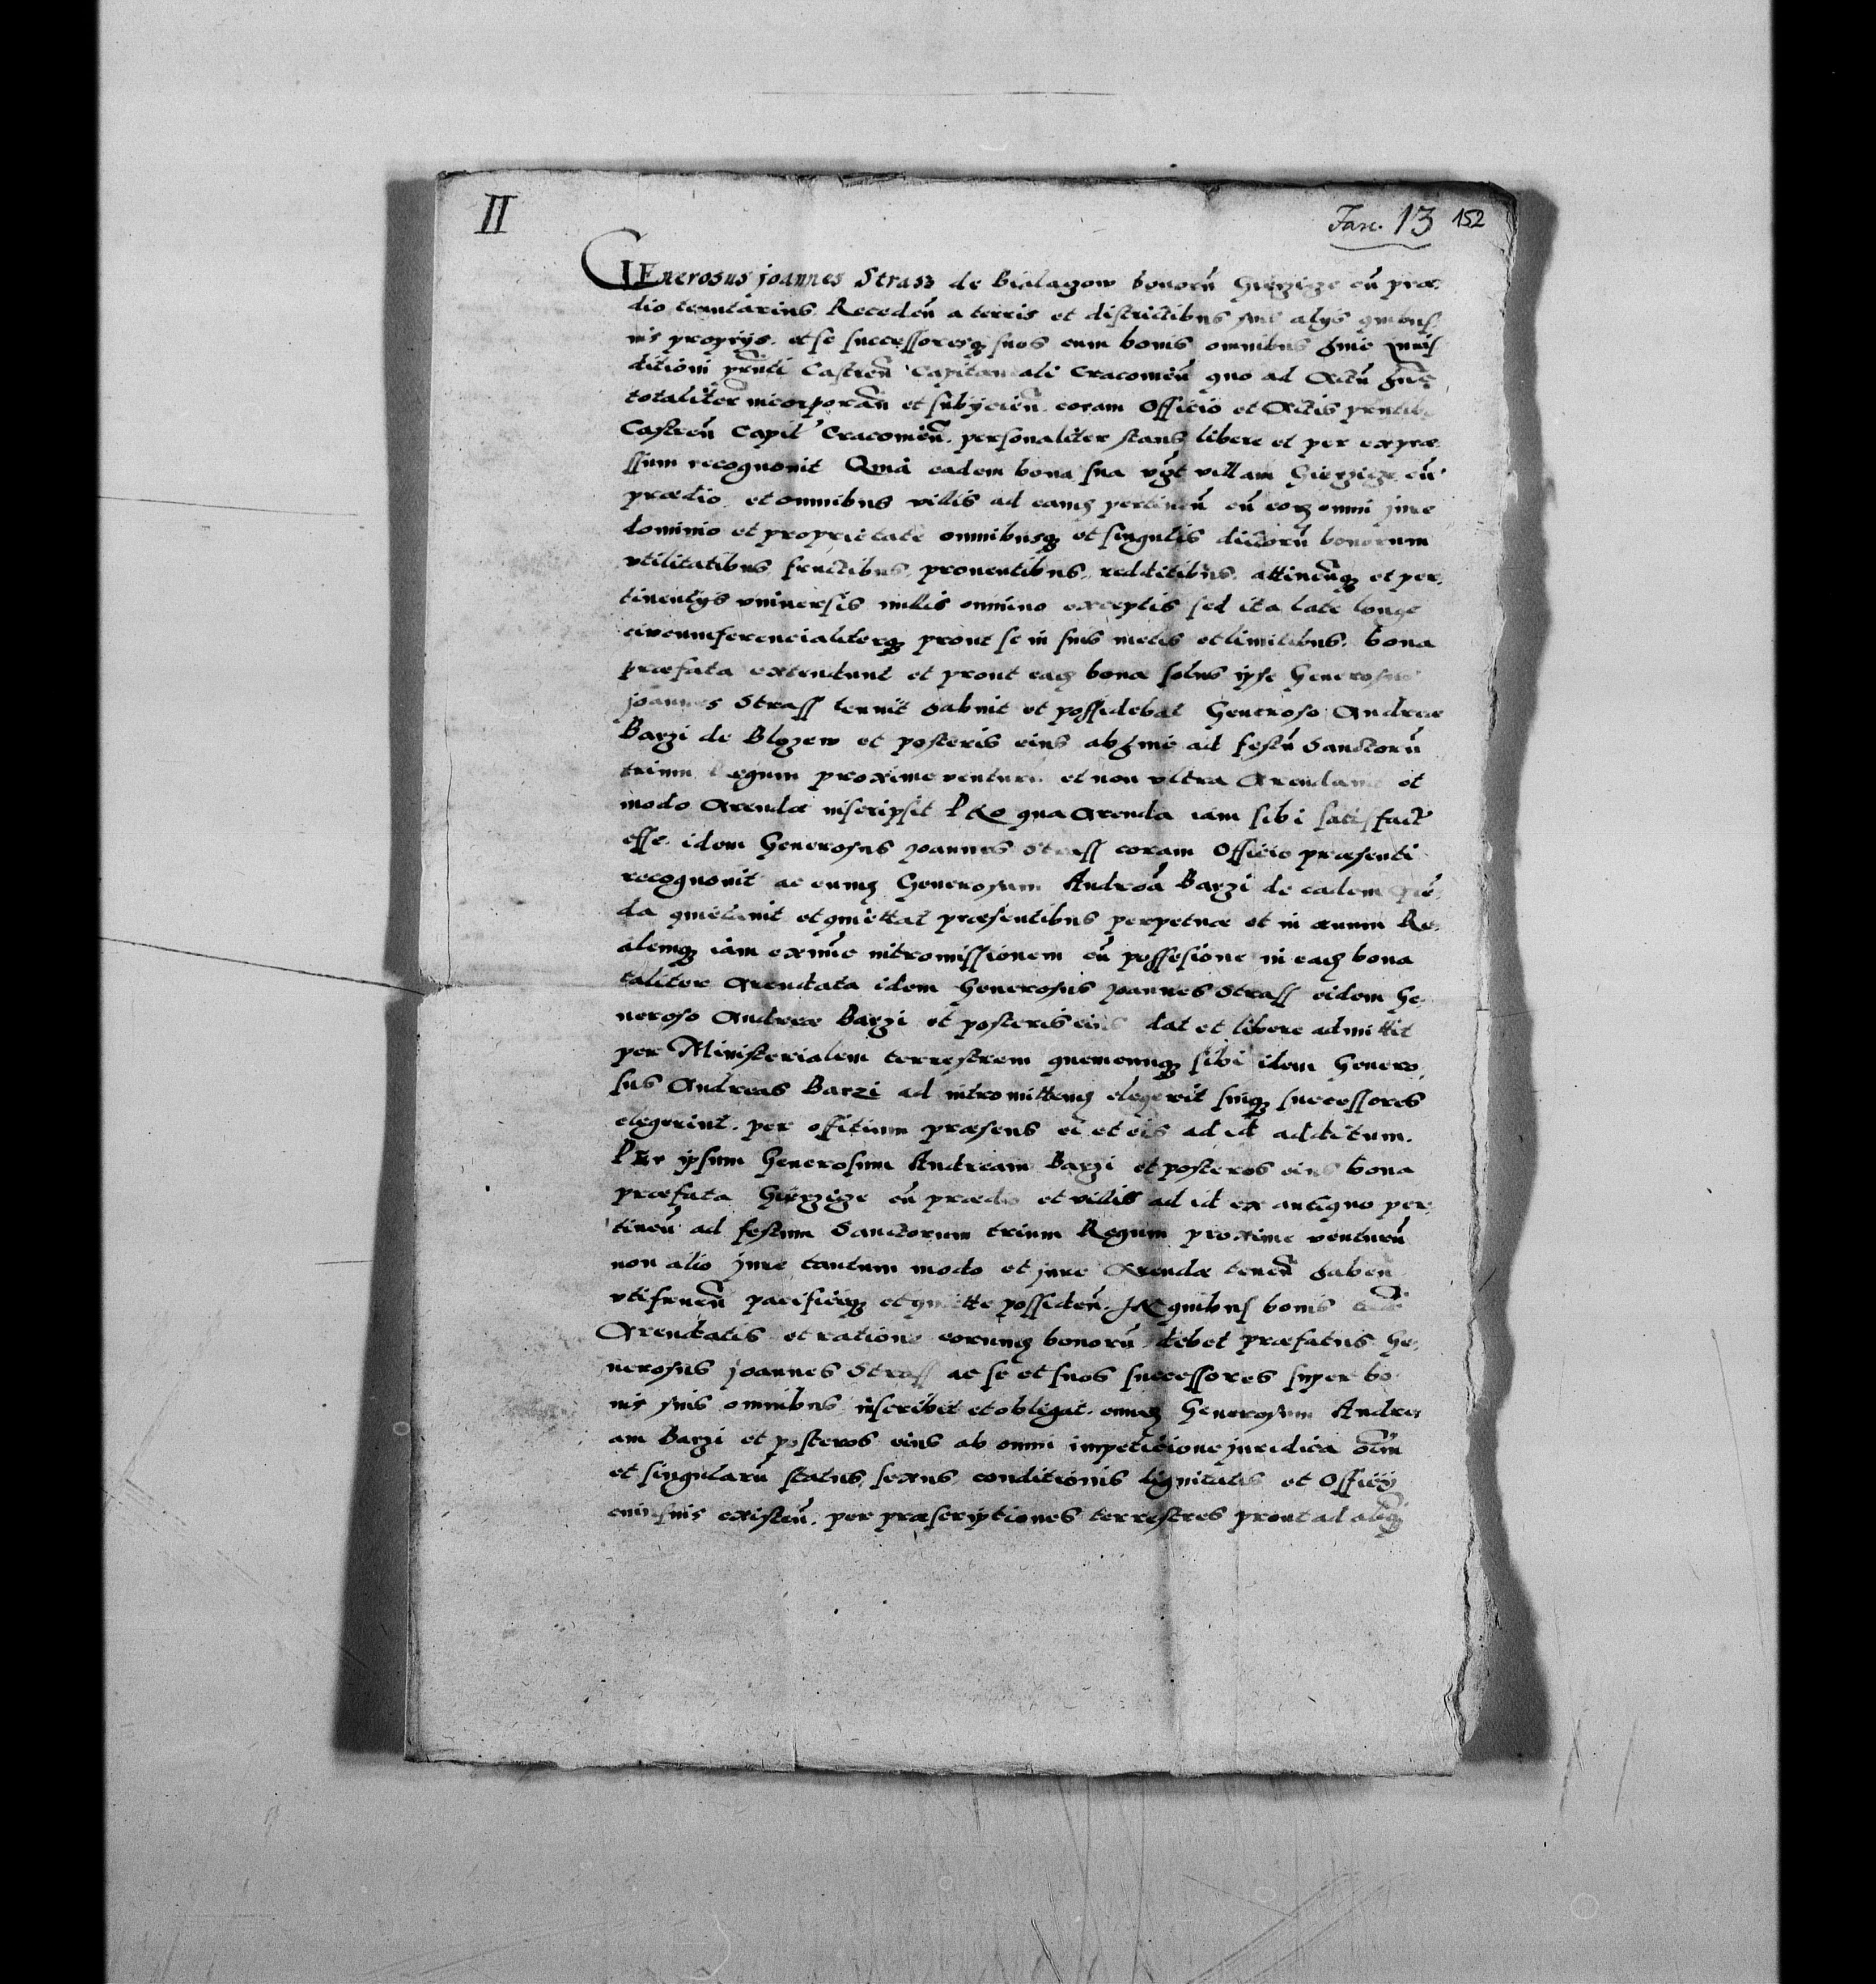 II
Fasc. 13 152
GEnerosus joannes Strasz de Bialaczow bonorū Giezgize cū præ,
dio tenutarius. Recedeñ a terris et districtibus suis alijs quibus,
uis proprijs. et se successoresq3 suos cum bonis omnibus hmōi Juris,
ditioni pñti Castreñ Capitaneali Cracouieñ quo ad Actū hūc
totalit̃er incorporañ et subijcieñ. coram Officio et Actis pñtib9
Castreñ Capit̃ Cracouieñ. personaliter stans libere et per expræ
ssum recognouit Quia eadem bona sua vz̃ villam Giezgize cū
prædio et omnibus villis ad eam3 pertineñ cū eor3 omni jure
dominio et proprietate omnibusq3 et singulis dictorū bonorum
vtilitatibus fructibus, prouentibus, redditibus. attineñq3 et per,
tinentijs vniuersis nullis omnino exceptis sed ita late longe
circumferencialiterq3 prout se in suis metis et limitibus. bona
præfata extendunt et prout ea3 bona solus ipse Generosus
joannes Strass tenuit habuit et possidebat Generoso Andreæ
Barzi de Blozew et posteris eius ab hinc ad festū Sanctorū
trium Regum proxime venturū et non vltra Arendauit et
modo Arendæ inscripsit PRo qua Arenda iam sibi satisfact̃
esse. idem Generosus joannes Strass coram Officio præsenti
recognouit ac eum3 Generosum Andreā Barzi de eadem
da quietauit et quiettat præsentibus perpetuæ et in æuum Re,
alemq3 iam ex nūc intromissionem cū possesione in ea3 bona
taliter Arendata idem Generosus joannes Strass eidem Ge,
neroso Andreæ Barzi et posteris eius dat et libere admittit
per Ministerialem terrestrem quemcunq3 sibi idem Genero,
sus Andreas Barzi ad intromittend̃ elegerit suiq3 successores
elegerint. per offitium præsens ei et eis ad id additum.
PEr ipsum Generosum Andream Barzi et posteros eius bona
præfata Giezgize cū prædio et villis ad id ex antiquo per,
tineñ ad festum Sanctorum trium Regum proxime venturū
non alio jure tantum modo et jure Arendæ teneñ habeñ
vtifrueñ pacificeq3 et quiette possideñ. IN quibus bonis
Arendatis et ratione eorum3 bonorū debet præfatus Ge,
nerosus joannes Strass ac se et suos successores super bo
nis suis omnibus inscribit et obligat. eum3 Generosum Andre
am Barzi et posteros eius ab omni impeticione juridica oīm
et singularū status, sexus, conditionis dignitatis et Officij
cuiusuis existeñ. per præscriptiones terrestres prout ad